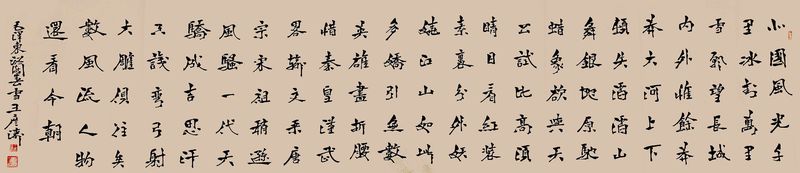 北國風光千
里冰封萬里
雪飄望長城
內外惟餘莽
莽大河上下
頓失滔滔山
舞銀蛇原馳
蜡象欲與天
公試比高須
晴日看紅裝
素裹分外妖
嬈江山如此
多嬌引無數
英雄盡折腰
惜秦皇漢武
畧輸文采唐
宗宋祖稍遜
風騷一代天
驕成吉思汗
只識彎弓射
大雕俱往矣
數風流人物
還看今朝
毛澤東沁園春雪